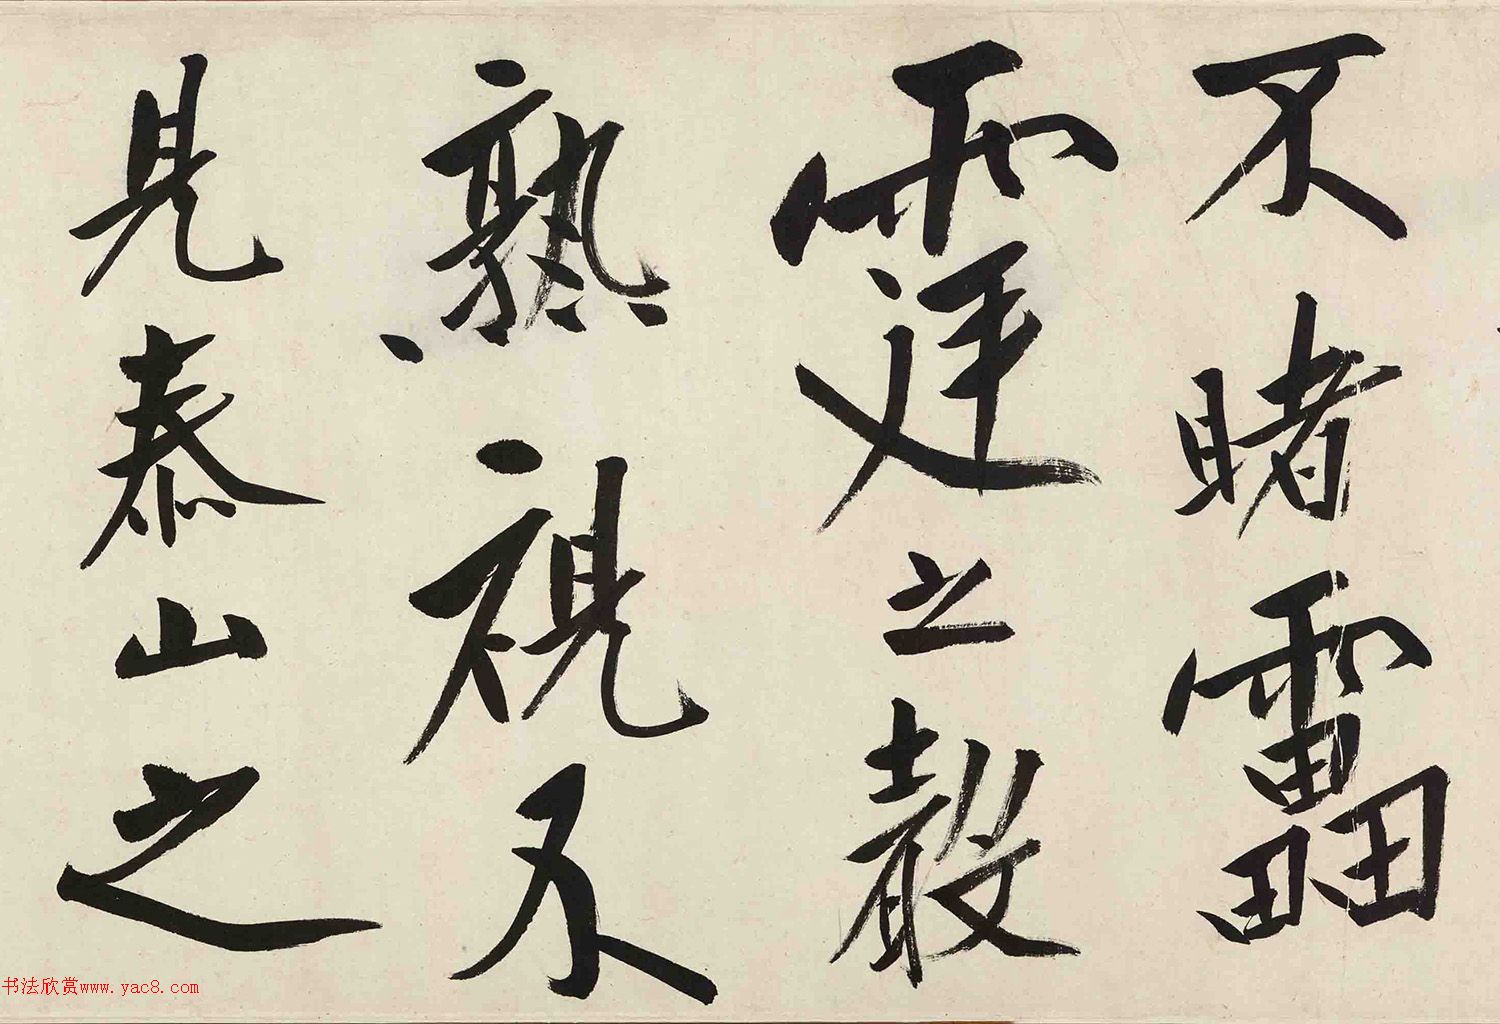 不睹靁
霆之聲
熟視不
見泰山之
书法欣赏www.yac8.com